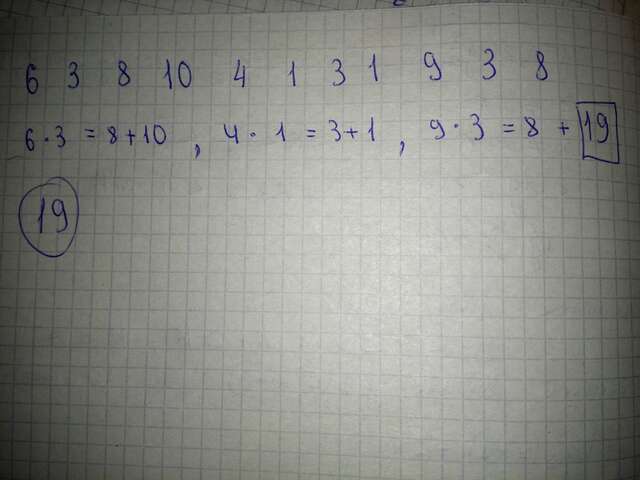 6 3 8 10 4 1 3 1 9 3 8
6 · 3 = 8 + 10 , 4 · 1 = 3 + 1 , 9 · 3 = 8 + 19
19